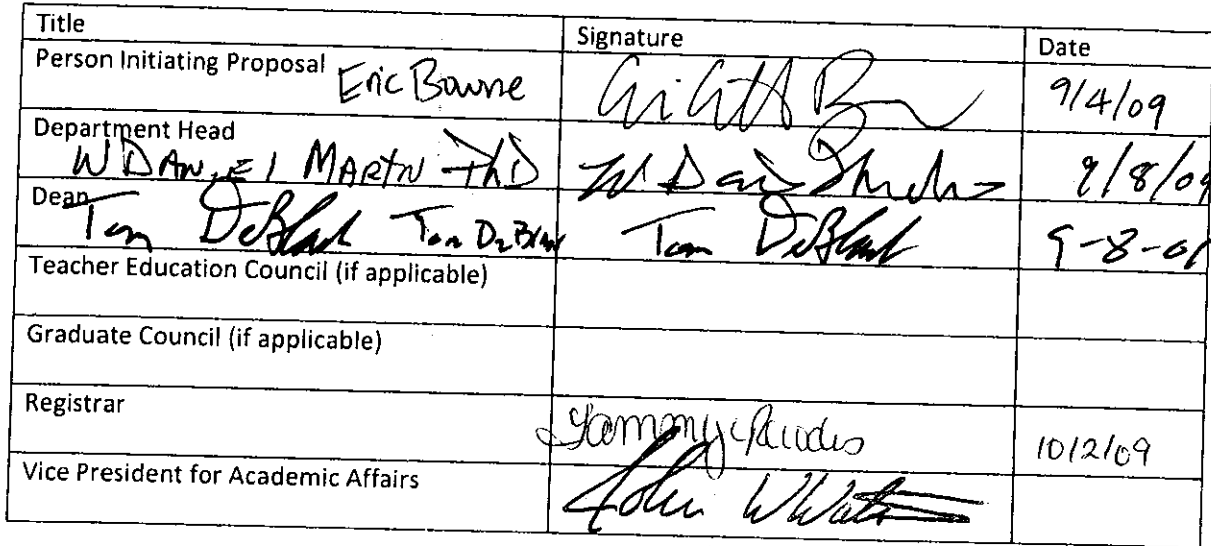 Title Signature Date
Person Initiating Proposal Eric Bowne 9/4/09
Department Head
W DANIEL MARTIN PhD 9/8/09
Dean
Tom DeBlack Tom DeBlack Tom DeBlack 9-8-0
Teacher Education Council (if applicable)
Graduate Council (if applicable)
Registrar
Tammy Rhodes 10/2/09
Vice President for Academic Affairs
John W Wats